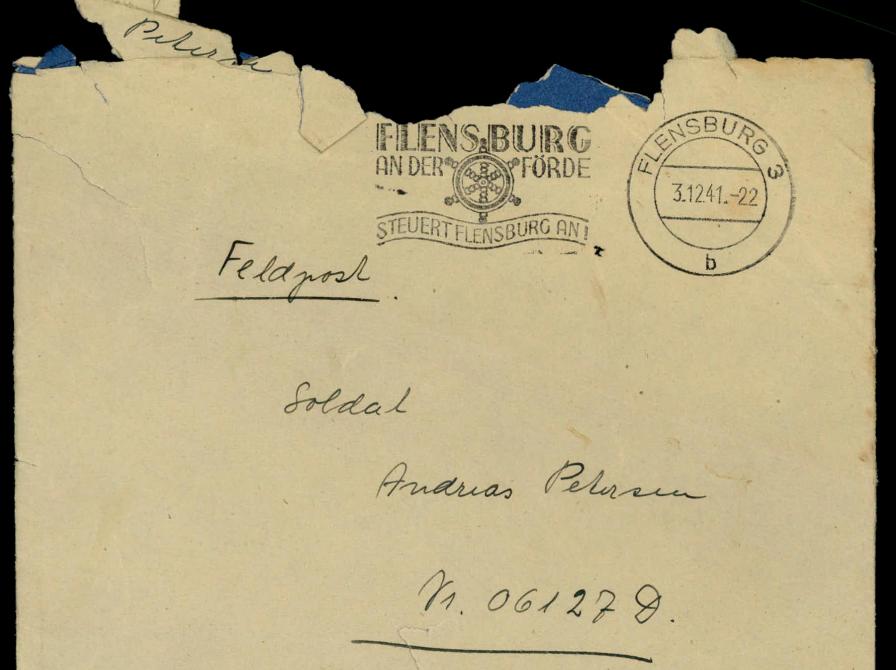 Petersen
FLENSBURG
AN DER FÖRDE
STEUERT FLENSBURG AN!
FLENSBURG 3
3.12.41.-22
b
Feldpost
Soldat
Andreas Petersen
Nr. 06127 D.